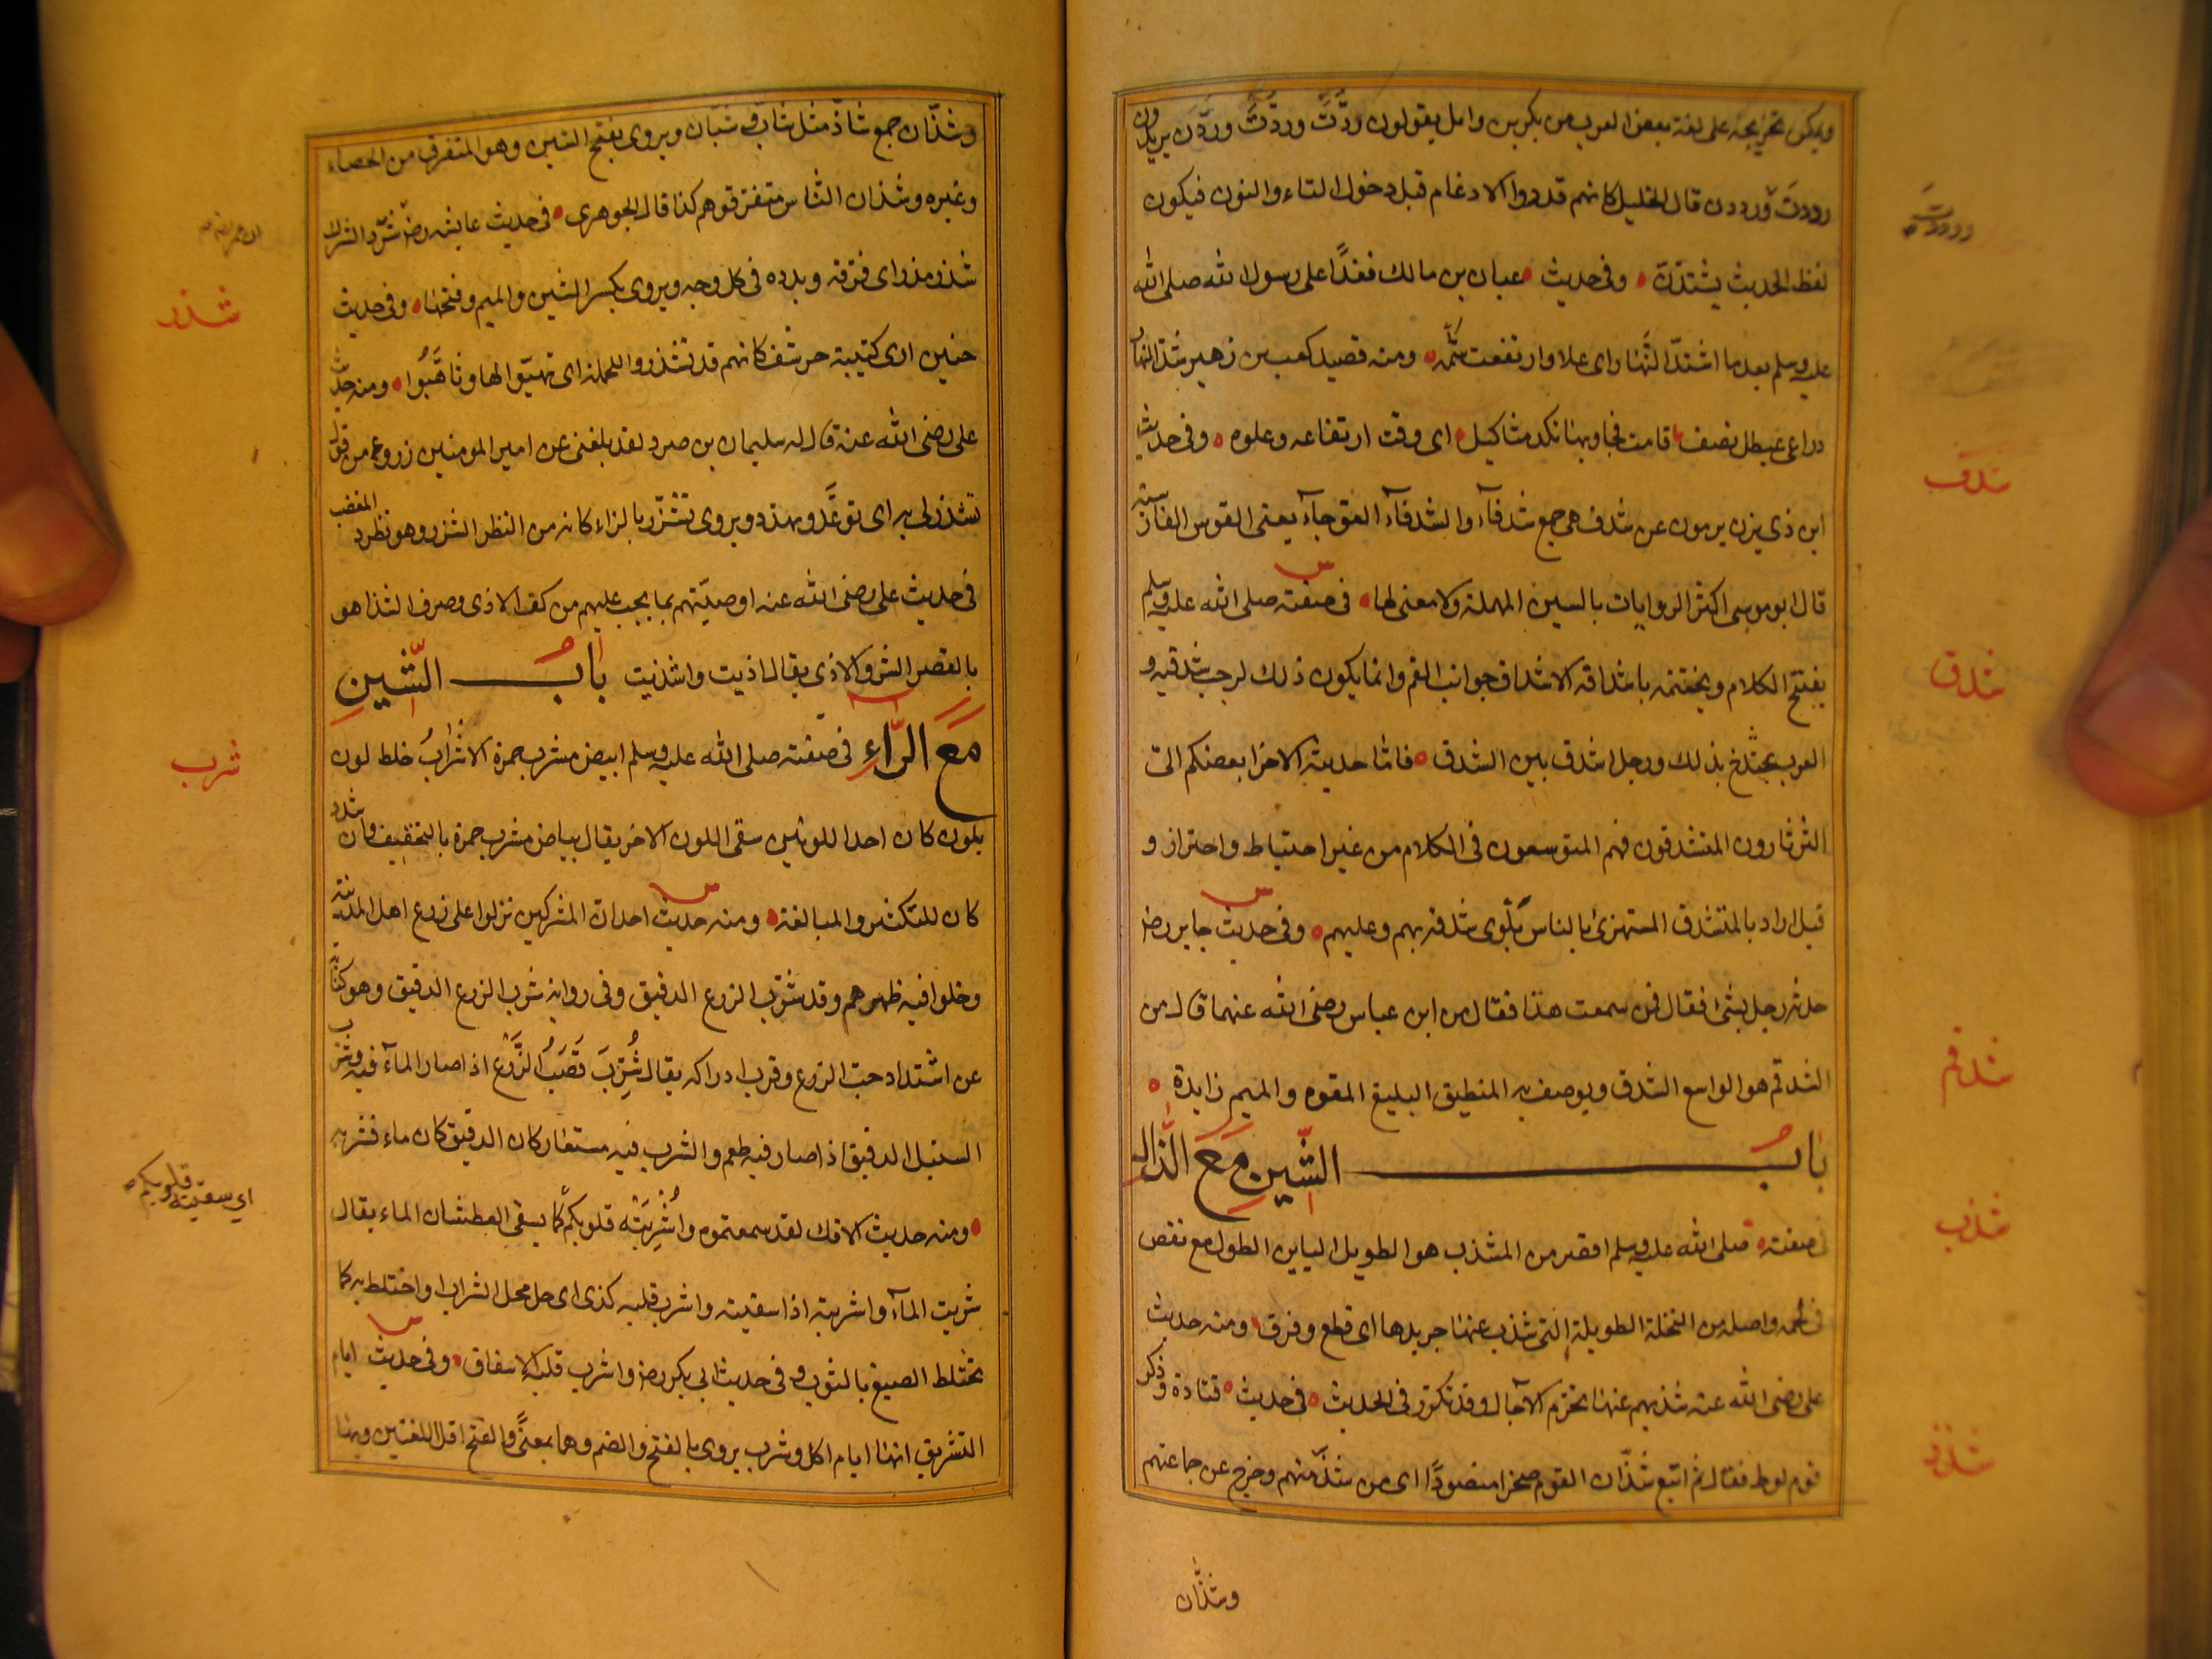 ويمكن تخريجه على لغة بعض العرب من بكر بن وايل يقولون ردَّتُ وردَّتَ وردَّن يريدون
رددت ورددن قال الخليل كانهم قدروا الادغام قبل دخول التاء والنون فيكون
رددت
لفظ الحديث يشتدّن وفى حديث عبان بن مالك فغدا على رسول الله صلى الله
عليه وسلم بعد ما اشتد النهار اى علا وارتفعت شمسه ومنه قصيد كعب بن زهير شد النهار
شدف
ذراعى عيطل نصف قامت فجاوبها نكد مثاكيل اى وقت ارتفاعه وعلوه وفى حديث
ابن ذى يزن يرمون عن شدف هى جمع شدفاء والشدفاء العوجاء يعنى القوس الفارسية
قال ابو موسى اكثر الروايات بالسين المهملة ولا معنى لها فى صفته صلى الله عليه وسلم
شدق
يفتتح الكلام ويختتمه باشداقه الاشداق جوانب الفم وانما يكون ذلك لرحب شدقيه و
العرب تمتدح بذلك ورجل اشدق بين الشدق فاما حديثه الاخر ابغضكم الى
الثرثارون المتشدقون فهم المتوسعون فى الكلام من غير احتياط واحتراز و
قيل اراد بالمتشدق المستهزئ بالناس يلوى شدقه بهم وعليهم وفى حديث جابر رض
حدثه رجل بشئ فقال ممن سمعت هذا فقال من ابن عباس رضى الله عنهما قال من
شدقم
الشدقم هو الواسع الشدق ويوصف به المنطيق البليغ المفوه والميم زايدة
باب الشين مع الذال
شذب
فى صفته صلى الله عليه وسلم اقصر من المشذب هو الطويل الباين الطول مع نقص
فى لحمه واصله من النخلة الطويلة التى شذب عنها جريدها اى قطع وفرق ومنه حديث
على رضى الله عنه شذبهم عنها تخرم الاجال وقد تكرر فى الحديث فى حديث قتادة وذكر
شذذ
قوم لوط فقال ثم اتبع شذّان القوم صخرا منضودا اى من شذ منهم وخرج عن جماعتهم
وشذّان
وشذّان جمع شاذ مثل شاب وشبان ويروى بفتح الشين وهو المتفرق من الحصاء
وغيره وشذان الناس متفرقوهم كذا قال الجوهرى فى حديث عايشه رض شرّد الشرك
شذر
شذر مذر اى فرقه وبدده فى كل وجه ويروى بكسر الشين والميم وفتحها وفى حديث
حنين ارى كتيبة حرشف كانهم قد تشذروا للحملة اى تهيّوا لها وتاهبوا ومنه حديث
على رضى الله عنه قال له سليمان بن صرد لقد بلغنى عن امير المومنين ذروءمن قول
تشذر لى به اى توعد وتهدد ويروى تشزر بالزاء كانه من النظر الشزر وهو نظر المغضب
فى حديث على رضى الله عنه اوصيتهم بما يجب عليهم من كف الاذى وصرف الشذا هو
بالقصر الشر والاذى يقال اذيت واشذيت باب الشين
شرب
مع الراء فى صفته صلى الله عليه وسلم ابيض مشرب حمرة الاشراب خلط لون
بلون كان احد اللونين سقى اللون الاخر يقال بياض مشرب حمرة بالتخفيف وان شدد
كان للتكثير والمبالغة ومنه حديث احد ان المشركين نزلوا على زرع اهل المدينة
وخلوا فيه ظهرهم وقد شرب الزرع الدقيق وفى رواية شرب الزرع الدقيق وهو كناية
عن اشتداد حب الزرع وقرب ادراكه يقال شرب قصب الزرع اذا صار الماء فيه وشرب
السنبل الدقيق اذا صار فيه طعم والشرب فيه مستعار كان الدقيق كان ماء فشربه
اي سقيته قلوبكم
ومنه حديث الافك لقد سمعتموه وأُشْرِبَتْه قلوبكم كما يسقى العطشان الماء يقال
شربت الماء واشربته اذا سقيته واشرب قلبه كذى اى حل محل الشراب واختلط به كما
تختلط الصبغ بالثوب وفى حديث ابى بكر رض واشرب قلبه الاسفاق وفى حديث ايام
التشريق انها ايام اكل وشرب يروى بالفتح والضم وهما بمعنًى والفتح اقل اللغتين وبها